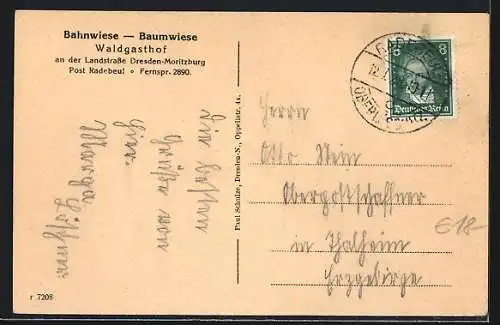 Bahnwiese — Baumwiese
Waldgasthof
an der Landstraße Dresden-Moritzburg
Post Radebeul o Fernspr. 2890.
Die besten
Grüße von
Marga
r 7208
Paul Schulze, Dresden-N., Oppellstr. 44.
8 8
Deutsches Reich
RADEBEUL
Herrn
Otto Stein
Oberpostschaffner
in Thalheim
Erzgebirge
€18-